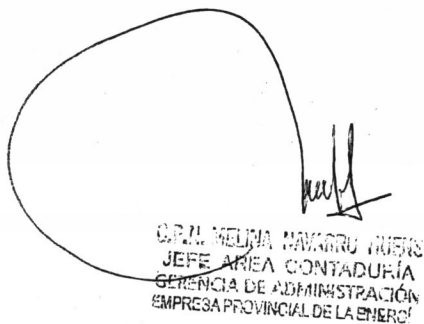 C.P.N. MELINA NAVARRO
JEFE AREA CONTADURÍA
GERENCIA DE ADMINISTRACIÓN
EMPRESA PROVINCIAL DE LA ENERGÍ